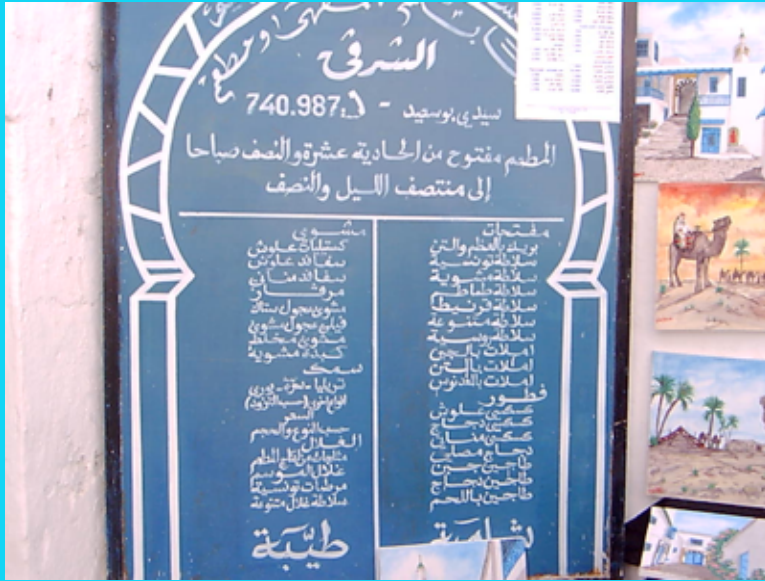 المقهى ومطعم
الشرفي
سيدي بوسعيد - 740.987
المطعم مفتوح من الحادية عشرة والنصف صباحا
إلى منتصف الليل والنصف
مفتحات
بريك بالعظم والتن
سلاطة تونسية
سلاطة مشوية
سلاطة طماطم
سلاطة قرنيط
سلاطة متنوعة
سلاطة روسية
املات بالجبن
املات بالتن
املات بالمقدنوس
فطور
كسكسي علوش
كسكسي دجاج
كسكسي مناني
دجاج مصلي
طاجين جبن
طاجين دجاج
طاجين باللحم
مشوي
كستليات علوش
سفائد علوش
سفائد مناني
مرقاز
مشوي مخلط
كبدة مشوية
سمك
السعر
حسب النوع والحجم
الغلال
غلال الموسم
مرطبات تونسية
سلاطة غلال متنوعة
شاهية طيّبة